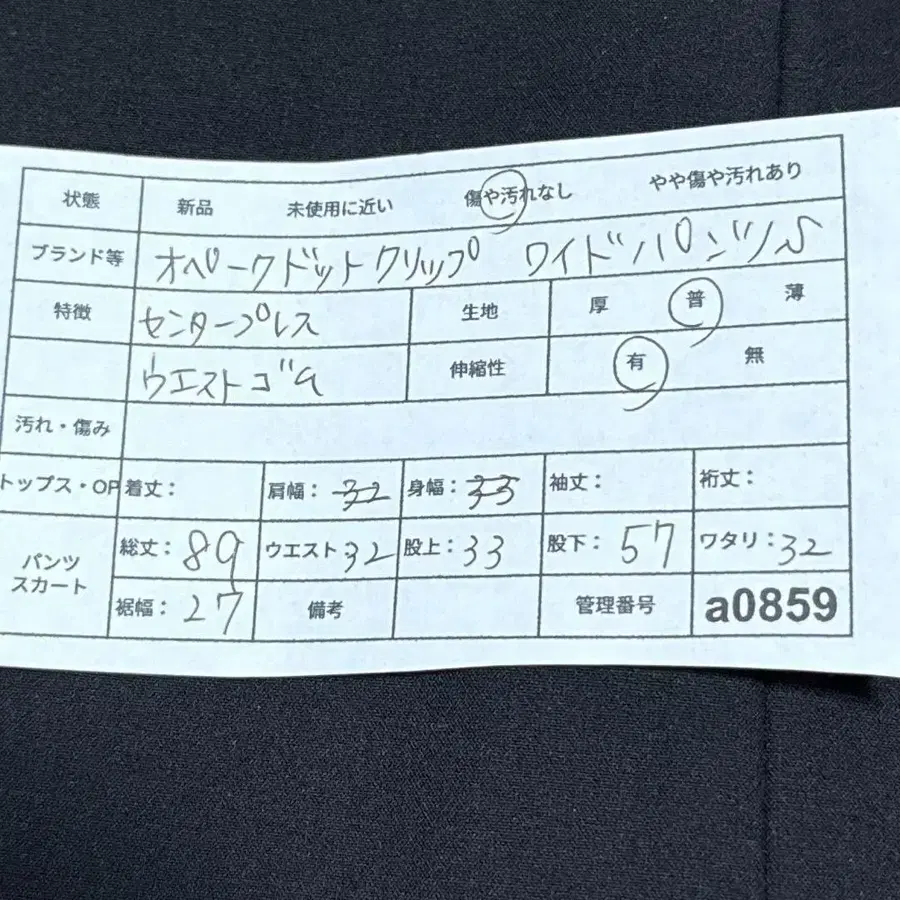 状態 新品 未使用に近い 傷や汚れなし やや傷や汚れあり
ブランド等 オペークドットクリップ ワイドパンツ S
特徴 センタープレス 生地 厚 普 薄
ウエストゴム 伸縮性 有 無
汚れ・傷み
トップス・OP 着丈： 肩幅：32 身幅：33 袖丈： 裄丈：
パンツ スカート 総丈：89 ウエスト 32 股上：33 股下：57 ワタリ：32
裾幅：27 備考 管理番号 a0859